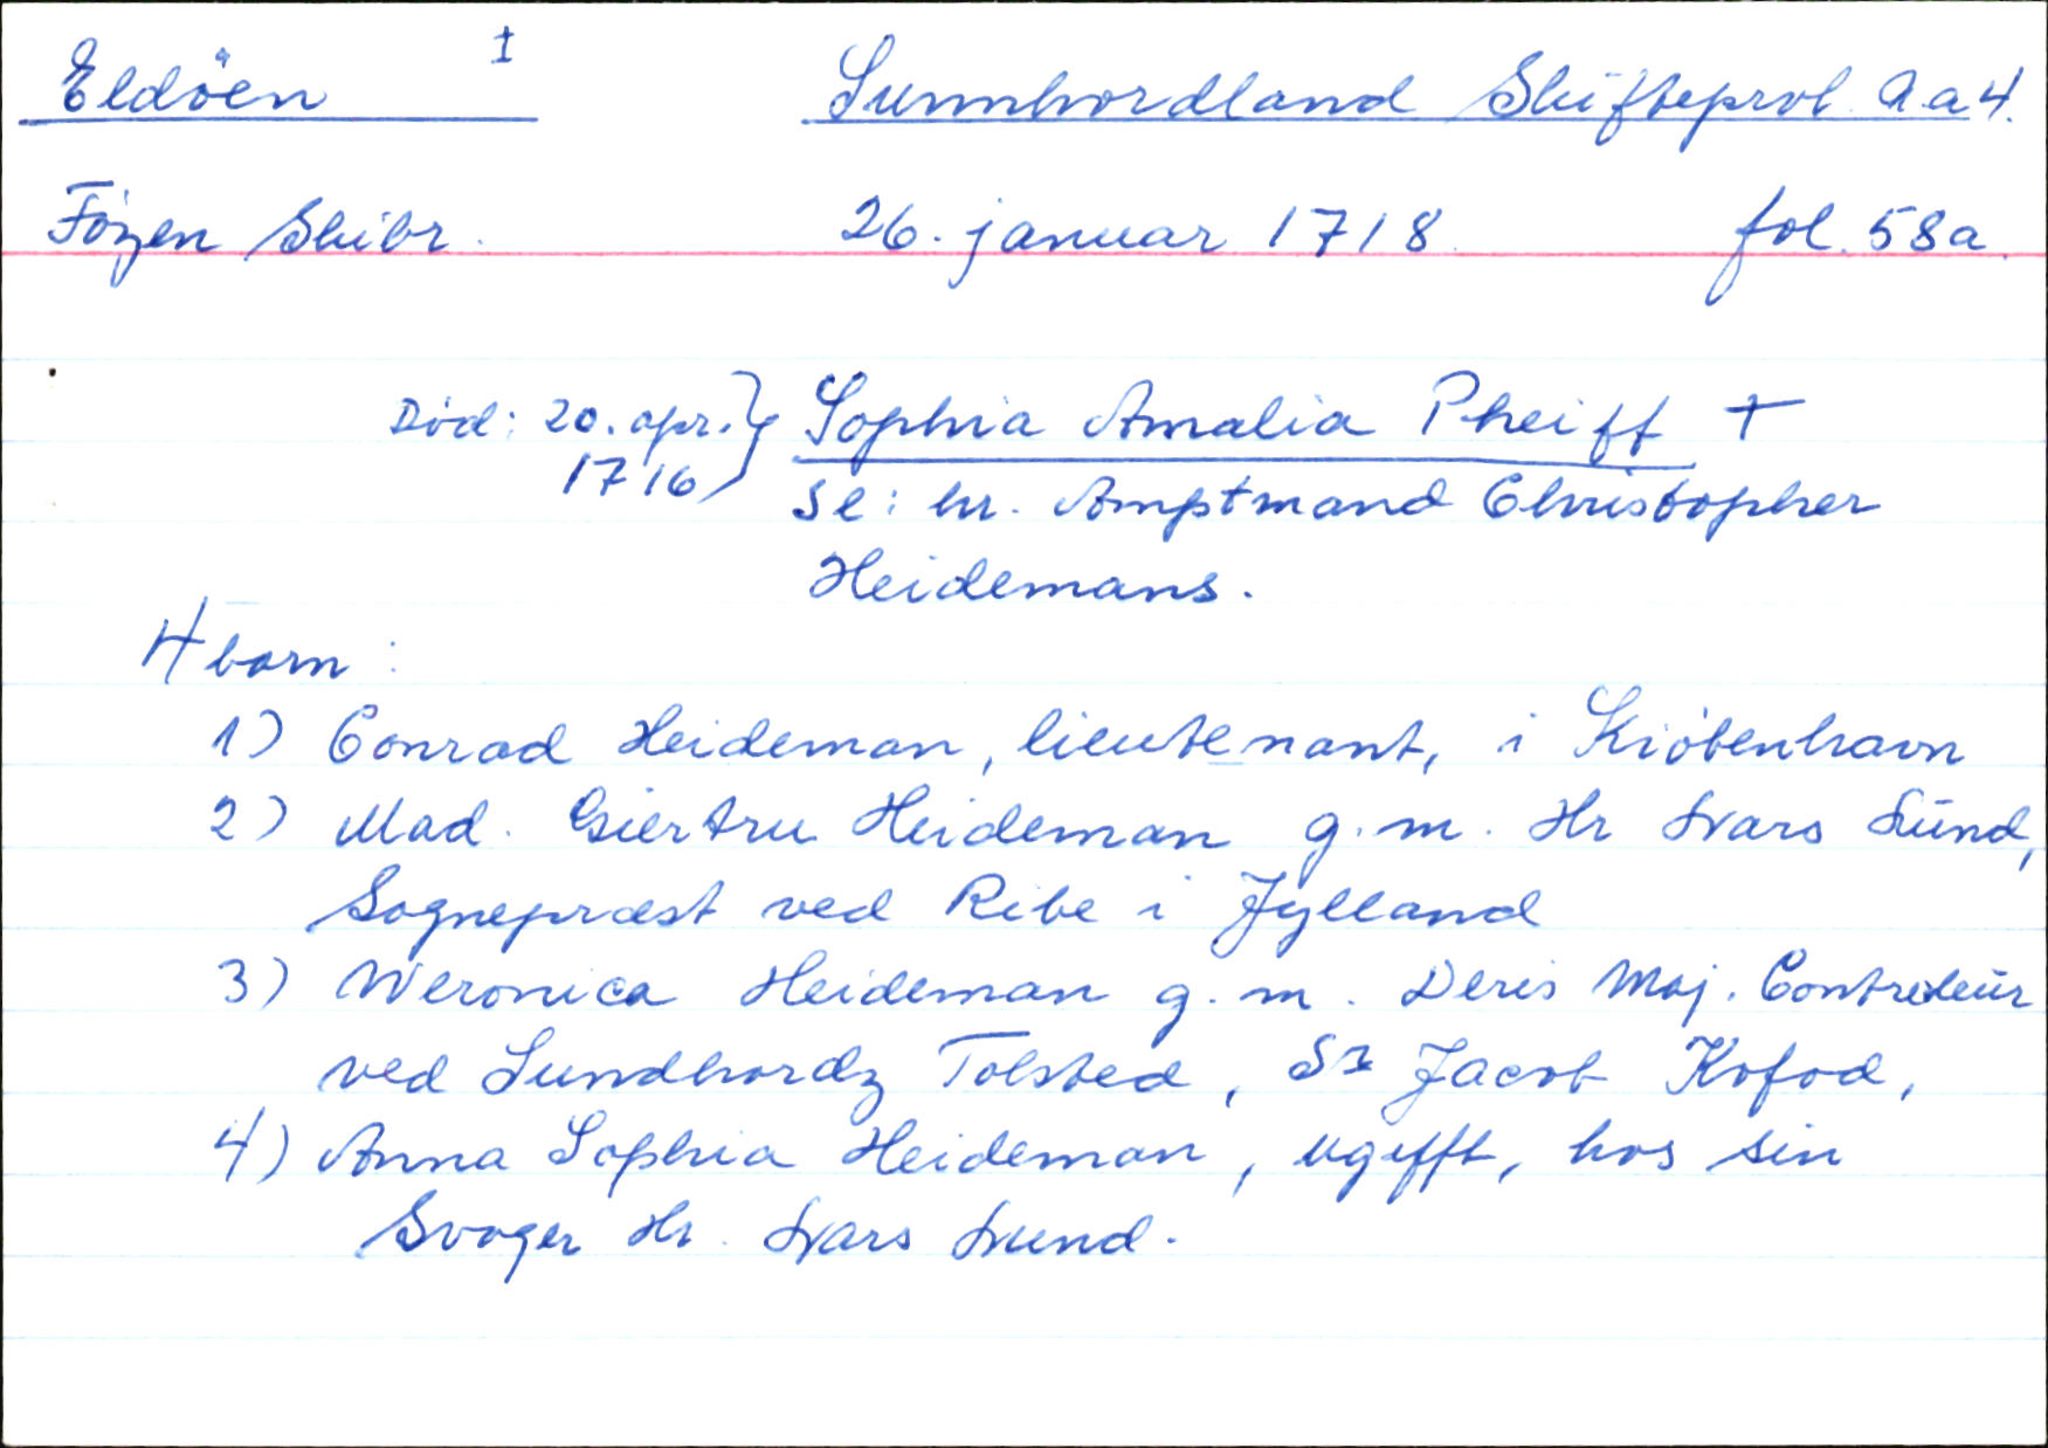 Eldöen I Sunnhordland Skifteprot. A.a 4.
Föyen Skibr. 26. januar 1718 fol. 58a.
Död: 20. apr. } Sophia Amalia Pheiff +
1716 Sl: hr. Amptmand Christopher
Heidemans.
4 born:
1) Conrad Heideman, lieutenant, i Kiöbenhavn
2) Mad. Giertru Heideman g.m. Hr Lars Lund,
Sognepræst ved Ribe i Jylland
3) Weronica Heideman g.m. Deris Maj. Contreleur
ved Sundhordz Tolsted, Sr Jacob Kofod,
4) Anna Sophia Heideman, ugifft, hos sin
Svoger Hr. Lars Lund.